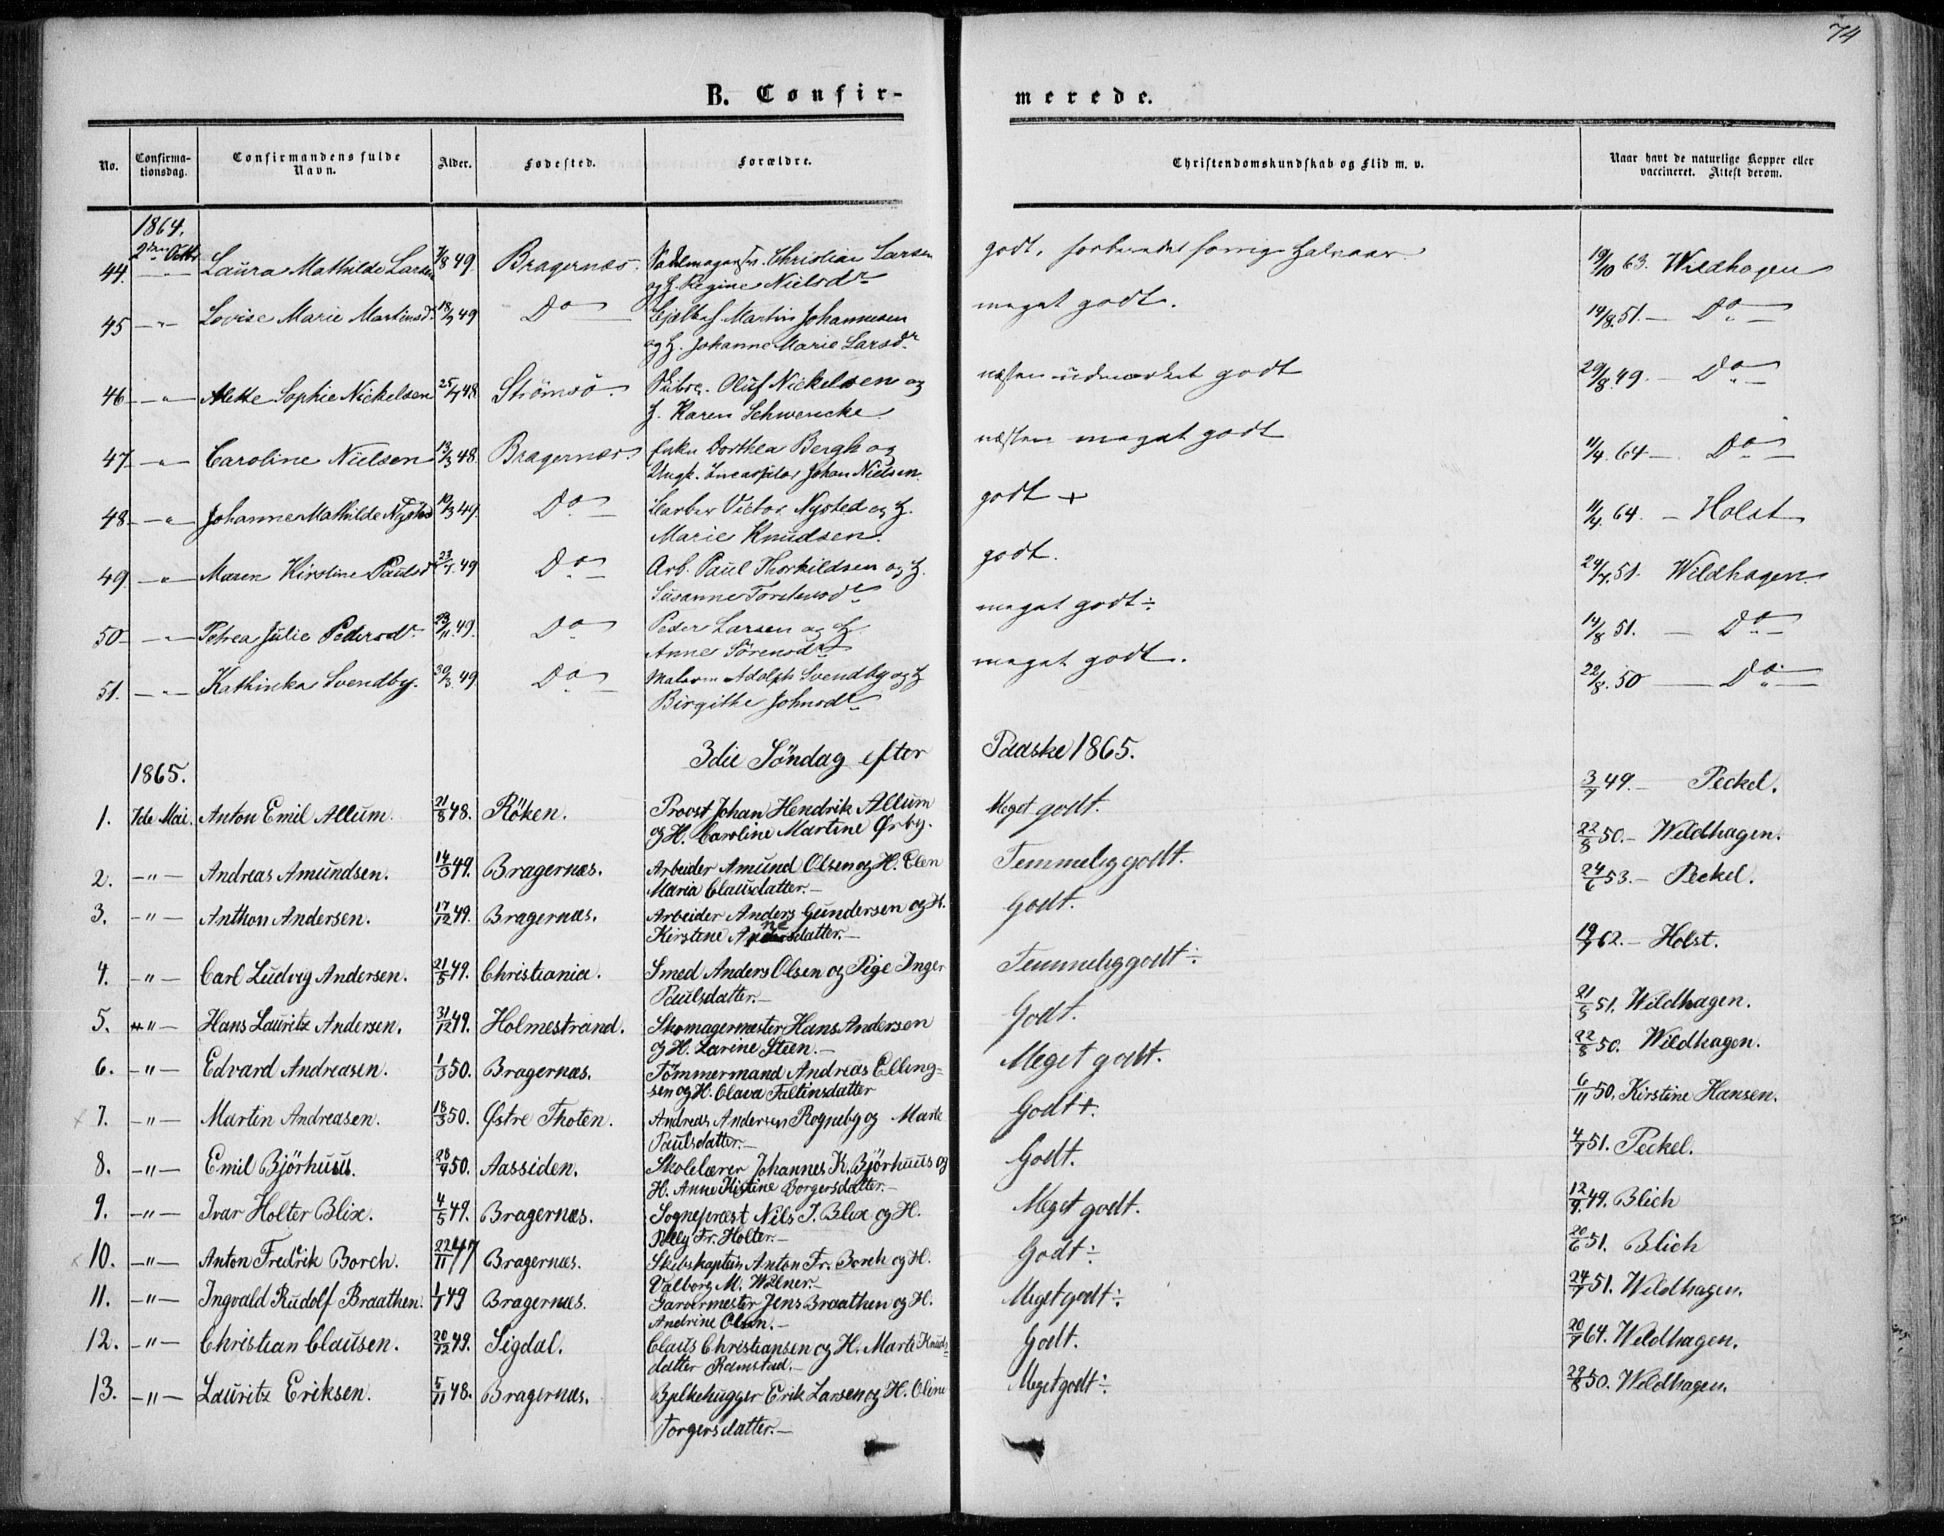 74
B. Confir-
merede.
No. Confirma-tionsdag. Confirmandens fulde Navn. Alder. Fødested. Forældre. Christendomskundskab og Flid m. v. Naar havt de naturlige Kopper eller vaccineret. Attest derom.
1864.
44. 2den Octbr Laura Mathilde Larsen 7/8 49. Bragernæs. Christian Larsen godt, forrige Halvaar 19/10 63. Wildhagen
og H. Regine Nielsdr
45 — " — Lovise Marie Martinsd. 18/7 49 Do Martin Johannesen meget godt. 14/8. 51. — Do
og H. Johanne Marie Larsdr
46 — " — Mette Sophie Nickelsen 25/7 48 Strömsö Skibrs. Oluf Nickelsen og næsten udmærket godt 29/8. 49. — Do
H. Karen Schwencke
47 — " — Caroline Nielsen 13/3 48. Bragernæs. Enke Dorthea Bergh og næsten meget godt 11/4. 64 — Do
Ungk. Johan Nielsen
48. — " — Johanne Mathilde Nysted 10/3 49. Do Victor Nysted og H. godt + 11/4. 64. — Holst
Marie Knudsen.
49 — " — Maren Kirstine Paulsd 23/1. 49 Do Arb. Paul Thorkildsen og H. godt. 24/7. 51. Wildhagen
Susanne
50 — " — Petrea Julie Pedersdr 23/11 49. Do Peder Larsen og H. meget godt ÷ 14/8 51. — Do
Anne Sörensdr
51. — " — Kathinka Svendby. 30/3. 49 Do Adolph Svendby og H meget godt. 22/8. 50 — Do
Birgithe Johnsdr
3die Söndag efter Paaske 1865.
1865.
1. 7de Mai. Anton Emil Allum. 21/8 48. Röken. Provst Johan Hendrik Allum Meget godt. 3/7 49. — Peckel.
og H. Caroline Martine Ørby.
2. — " — Andreas Amundsen. 14/3 49. Bragernæs. Arbeider Amund Olsen og H. Elen Temmelig godt. 22/8 50. — Wildhagen.
Maria Clausdatter. —
3. — " — Anthon Andersen. 17/12 49. Bragernæs. Arbeider Anders Gundersen og H. Godt. 24/6 53. — Peckel.
Kirstine datter. —
4. — " — Carl Ludvig Andersen. 21/5 49. Christiania. Smed Anders Olsen og Pige Inger Temmelig godt ÷ 19/7 62. — Holst.
Paulsdatter. —
5. — " — Hans Lauritz Andersen. 31/12 49. Holmestrand. Skomagermester Hans Andersen Godt. 21/5 51. Wildhagen.
og H. Larine Steen. —
6. — " — Edvard Andreasen. 1/3 50. Bragernæs. Tömmermand Andreas Elling- Meget godt. 22/8 50. Wildhagen.
sen og H. Olava Faltinsdatter
7. — " — Martin Andreasen. 18/3 50. Østre Thoten. Andreas Andersen Rogneby og Marte Godt +. 6/11 50. Kirstine Hansen.
Paulsdatter. —
8. — " — Emil Björhuus. 28/9 50. Aassiden. Skolelærer Johannes K. Björhuus og Godt. 4/7 51. Peckel.
H. Anne Kistine Borgersdatter. —
9. — " — Ivar Holter Blix. 4/5 49. Bragernæs. Sognepræst Nils J. Blix og H. Meget godt. 12/9. 49. Blich
Fr. Holter. —
10. — " — Anton Fredrik Borch. 22/11 47 Bragernæs. Skibskaptein Anton Fr. Borch og H. Godt ÷ 20/6 51. Blich
Valborg M. Wilner. —
11. — " — Ingvald Rudolf Braathen. 1/7 49 Bragernæs. Garvermester Jens Braathen og H. Meget godt ÷ 24/7 51. Wildhagen.
Andrine Olsen. —
12. — " — Christian Clausen. 20/12 49. Sigdal. Claus Christiansen og H. Marte Knuds- Godt. 20/7 64. Wildhagen.
datter Ramstad. —
13. — " — Lauritz Eriksen. 5/11 48. Bragernæs. Bjelkehugger Erik Larsen og H. Oline Meget godt ÷ 29/8 50. Wildhagen.
Torgersdatter. —